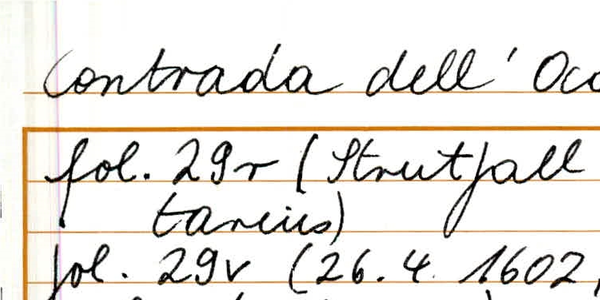 Contrada dell' Oco
fol. 29r (Streitfall
tarius)
fol. 29v (26.4. 1602,